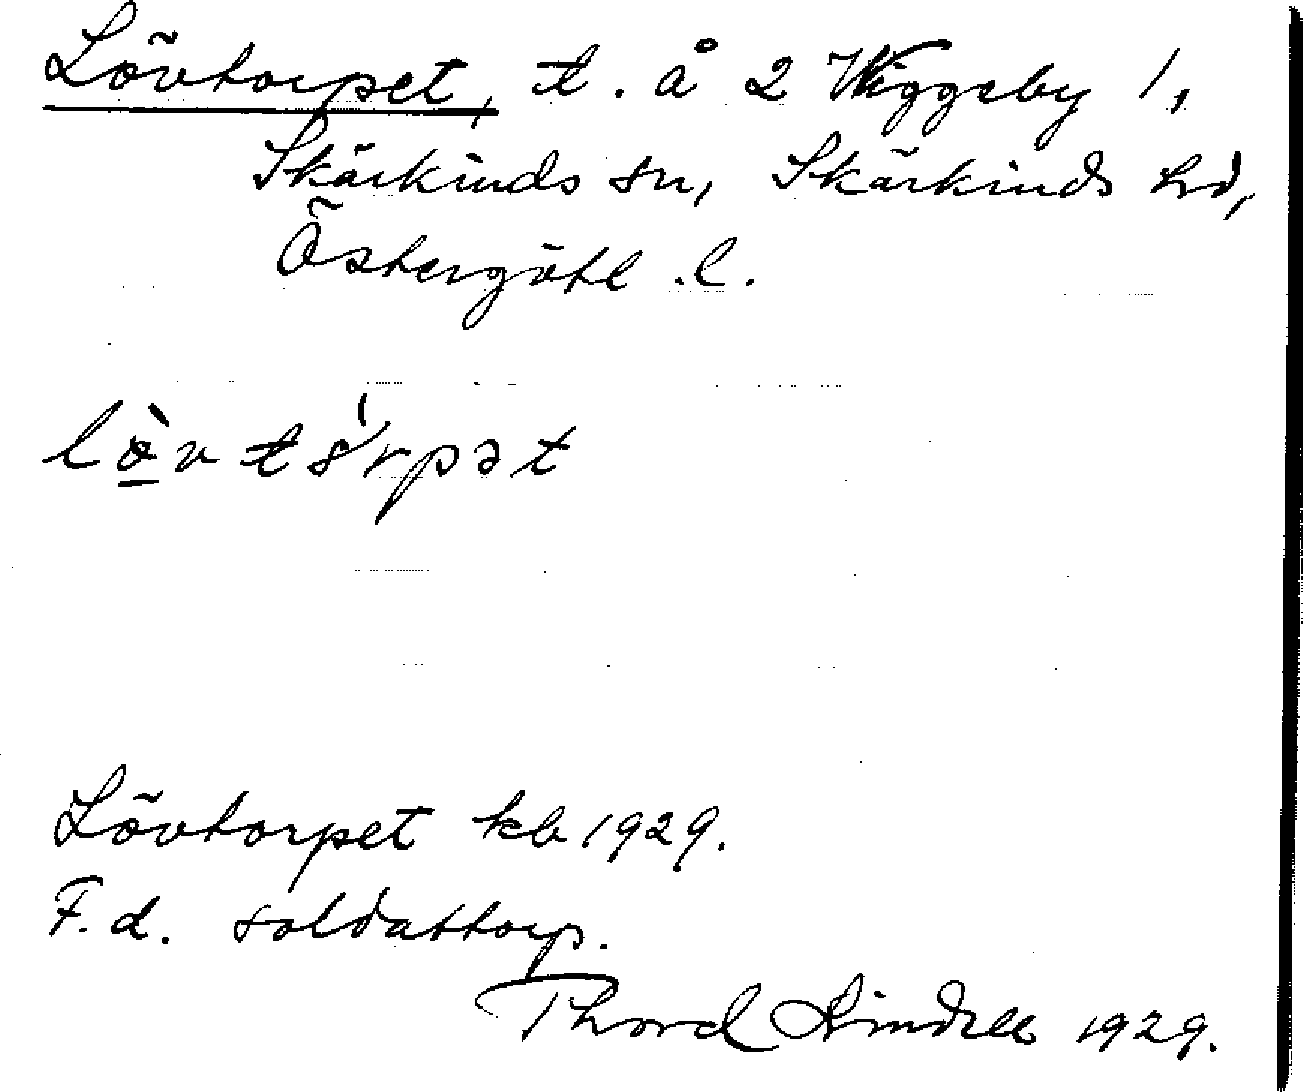 Lövtorpet, t. å 2 Wiggeby 1,
Skärkinds sn, Skärkinds hd,
Östergötl. l.
Lövtorpet kb 1929.
F. d. soldattorp.
Thord Lindell 1929.